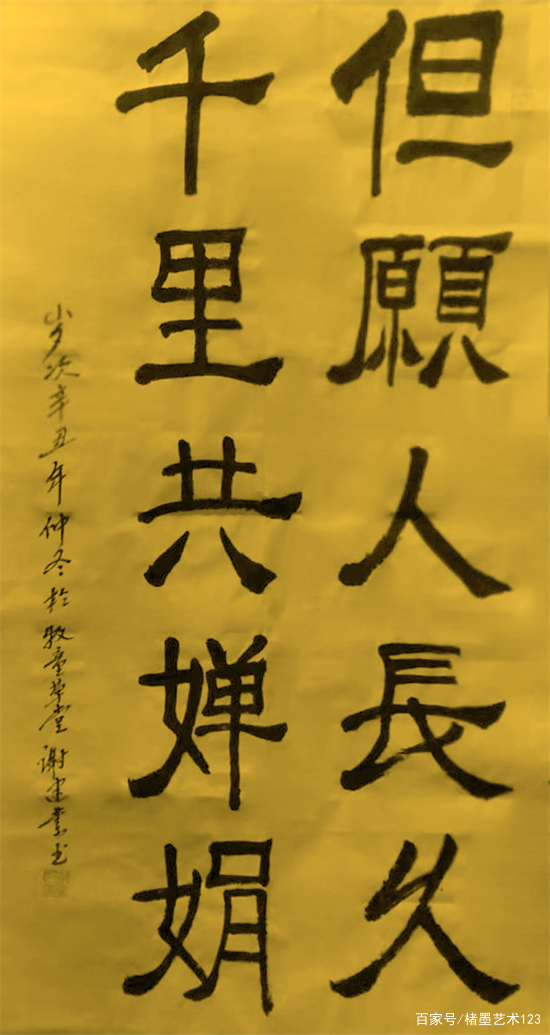 但願人長久
千里共婵娟
岁次辛丑年仲冬於牧童草堂谢建業书
百家号/楮墨艺术123